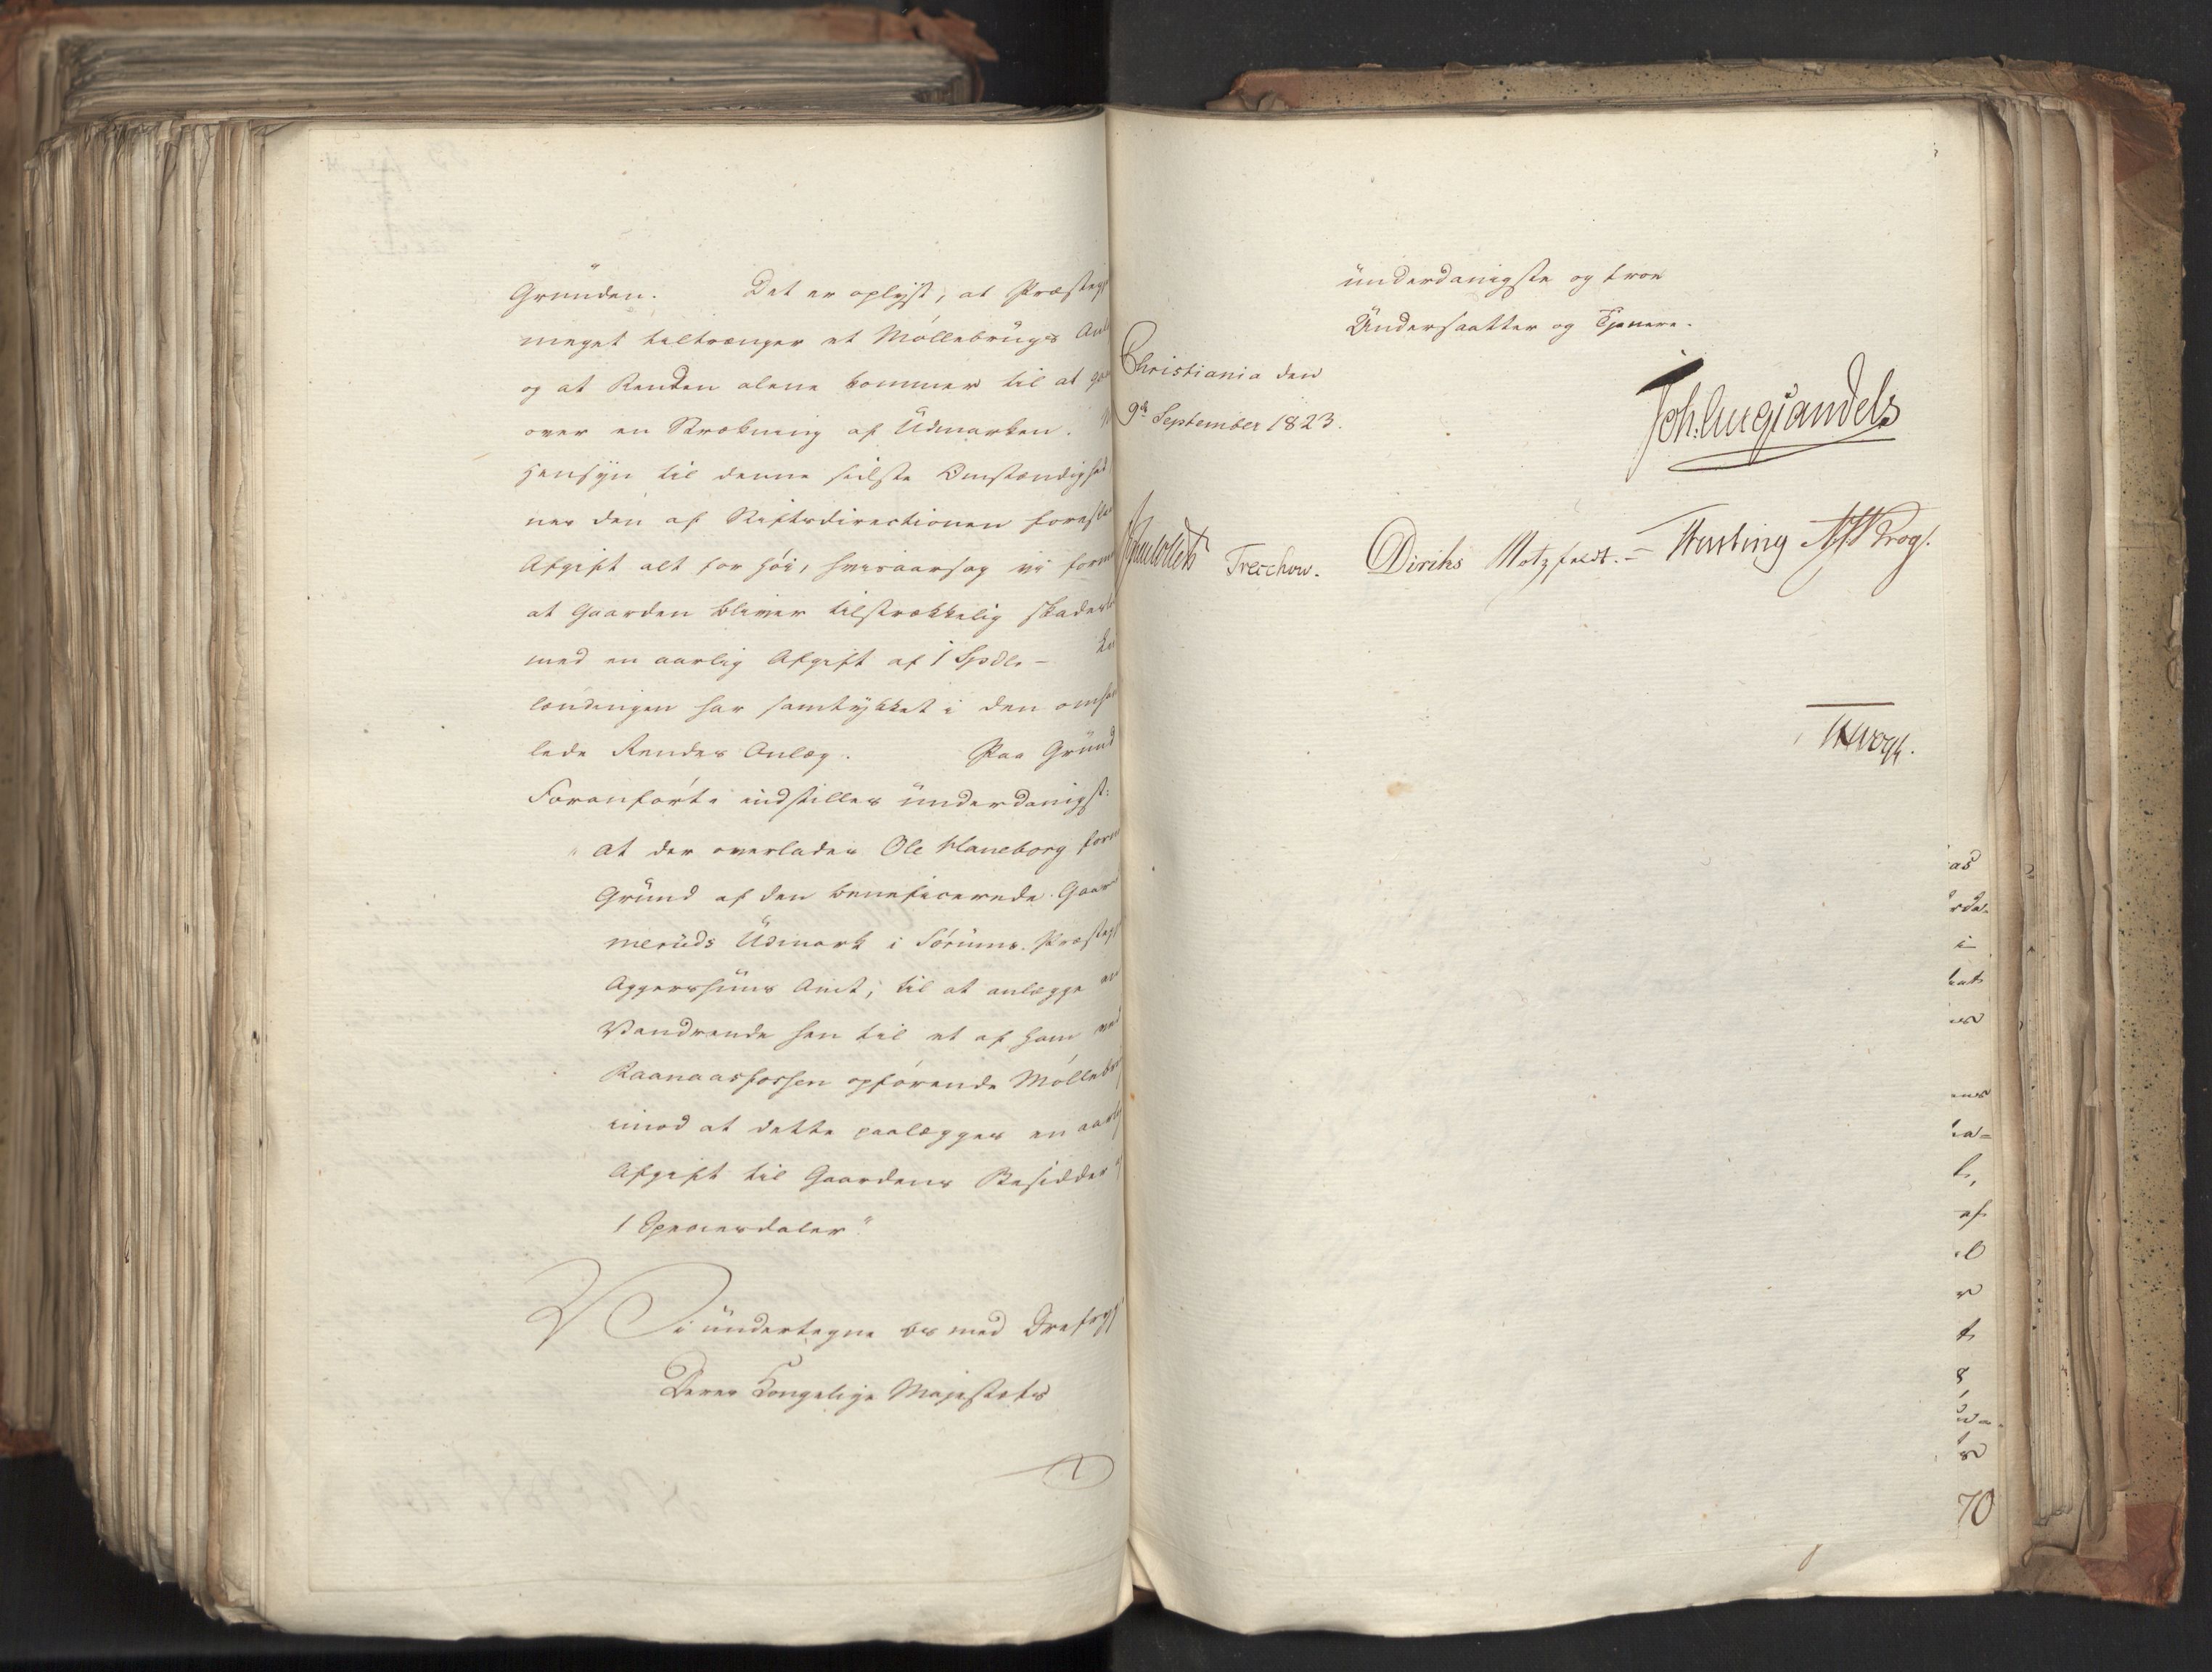 Grunden. Det er oplyst, at Præsteg
meget tiltrænger et Møllebrugs Anl
og at Renden alene kommer til at gaa
over en Strækning af Udmarken.
Hensyn til denne sidste Omstændighed
nes den af Stiftsdirectionen foresla
Afgift alt for høi, hvisaarsag vi form
at Gaarden bliver tilstrækkelig skadesl
med en aarlig Afgift af 1 Spdlr –
lændingen har samtykket i den omha
lede Rendes Anlæg. Paa Grund
Foranførte indstilles underdanigst:
"at der overlades Ole Haneborg forn
Grund af den beneficerede Gaar
meruds Udmark i Sørums Præsteg
Aggershuus Amt, til at anlægge en
Vandrende hen til et af ham ved
Raanaasfossen opførende Møllebr
imod at dette paalægges en aarlig
Afgift til Gaardens Besidder af
1 Speciesdaler"
Vi undertegne os med Dybefrygt
Deres Kongelige Majestæts
underdanigste og troe
Undersaatter og Tjenere.
Christiania den
9de September 1823.
Joh: Aug Sandels
JCollett Treschow. Diriks Motzfeldt. – Fasting Krog.
NVogt.
as
rda-
i
ens
ka-
af
70